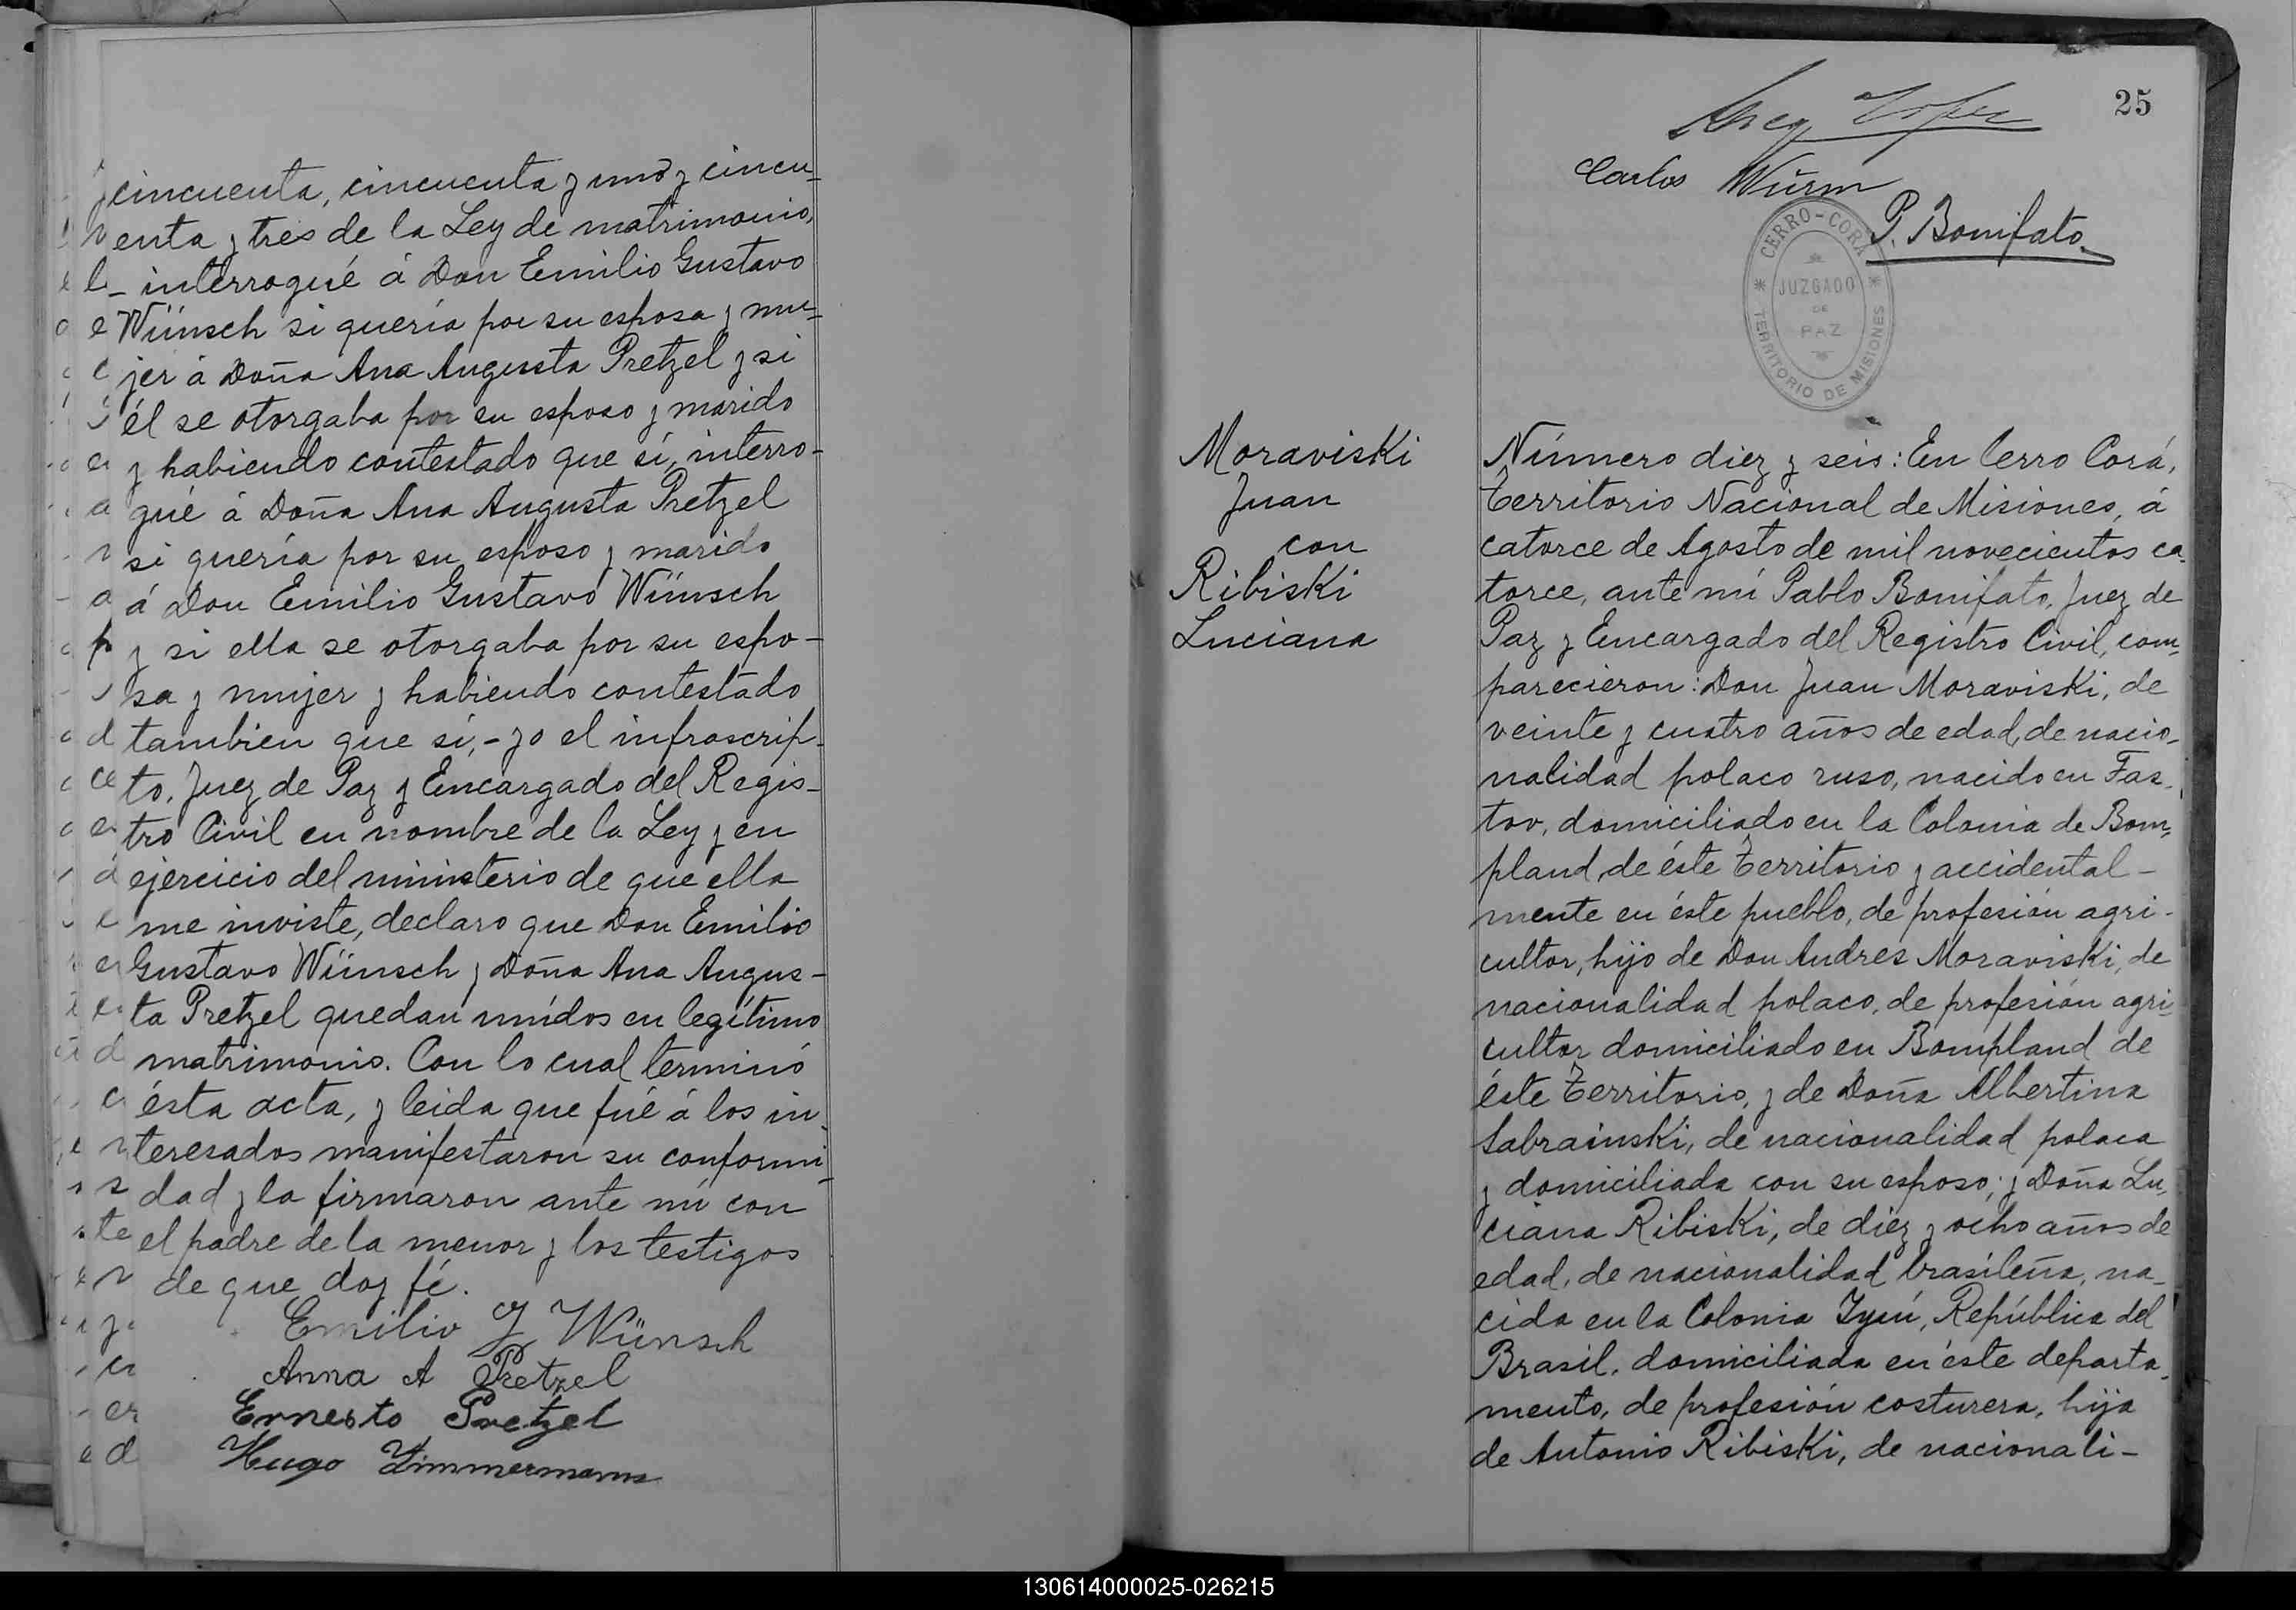 cincuenta, cincuenta y uno y cincu-
enta y tres de la Ley de matrimonio,
- interrogué á Don Emilio Gustavo
Wünsch si quería por su esposa y mu-
jer á Doña Ana Augusta Pretzel y si
él se otorgaba por su esposo y marido
y habiendo contestado que sí, interro-
gué á Doña Ana Augusta Pretzel
si quería por su esposo y marido
á Don Emilio Gustavo Wünsch
y si ella se otorgaba por su espo-
sa y mujer y habiendo contestado
tambien que sí,- yo el infrascrip-
to, Juez de Paz y Encargado del Regis-
tro Civil en nombre de la Ley y en
ejercicio del ministerio de que ella
me inviste, declaro que Don Emilio
Gustavo Wünsch y Doña Ana Augus-
ta Pretzel quedan unidos en legítimo
matrimonio. Con lo cual terminó
ésta acta, y leida que fué á los in-
teresados manifestaron su conformi-
dad y la firmaron ante mí con
el padre de la menor y los testigos
de que doy fé.
Emilio G Wünsch
Anna A Pretzel
Ernesto Pretzel
Hugo Zimmermann
25
Carlos Würm
P. Bonifato
CERRO-CORÁ
JUZGADO
DE
PAZ
TERRITORIO DE MISIONES
Moraviski
Juan
con
Ribiski
Luciana
Número diez y seis: En Cerro Corá,
Territorio Nacional de Misiones, á
catorce de Agosto de mil novecientos ca-
torce, ante mí Pablo Bonifato, Juez de
Paz y Encargado del Registro Civil, com-
parecieron: Don Juan Moraviski, de
veinte y cuatro años de edad, de nacio-
nalidad polaco ruso, nacido en Fas-
tov, domiciliado en la Colonia de Bom-
pland, de éste Territorio y accidental-
mente en éste pueblo, de profesión agri-
cultor, hijo de Don Andres Moraviski, de
nacionalidad polaco, de profesión agri-
cultor domiciliado en Bompland de
éste Territorio, y de Doña Albertina
Sabrainski, de nacionalidad polaca
y domiciliada con su esposo; y Doña Lu-
ciana Ribiski, de diez y ocho años de
edad, de nacionalidad brasileña, na-
cida en la Colonia Iyuí, República del
Brasil, domiciliada en éste departa-
mento, de profesión costurera, hija
de Antonio Ribiski, de nacionali-
130614000025-026215